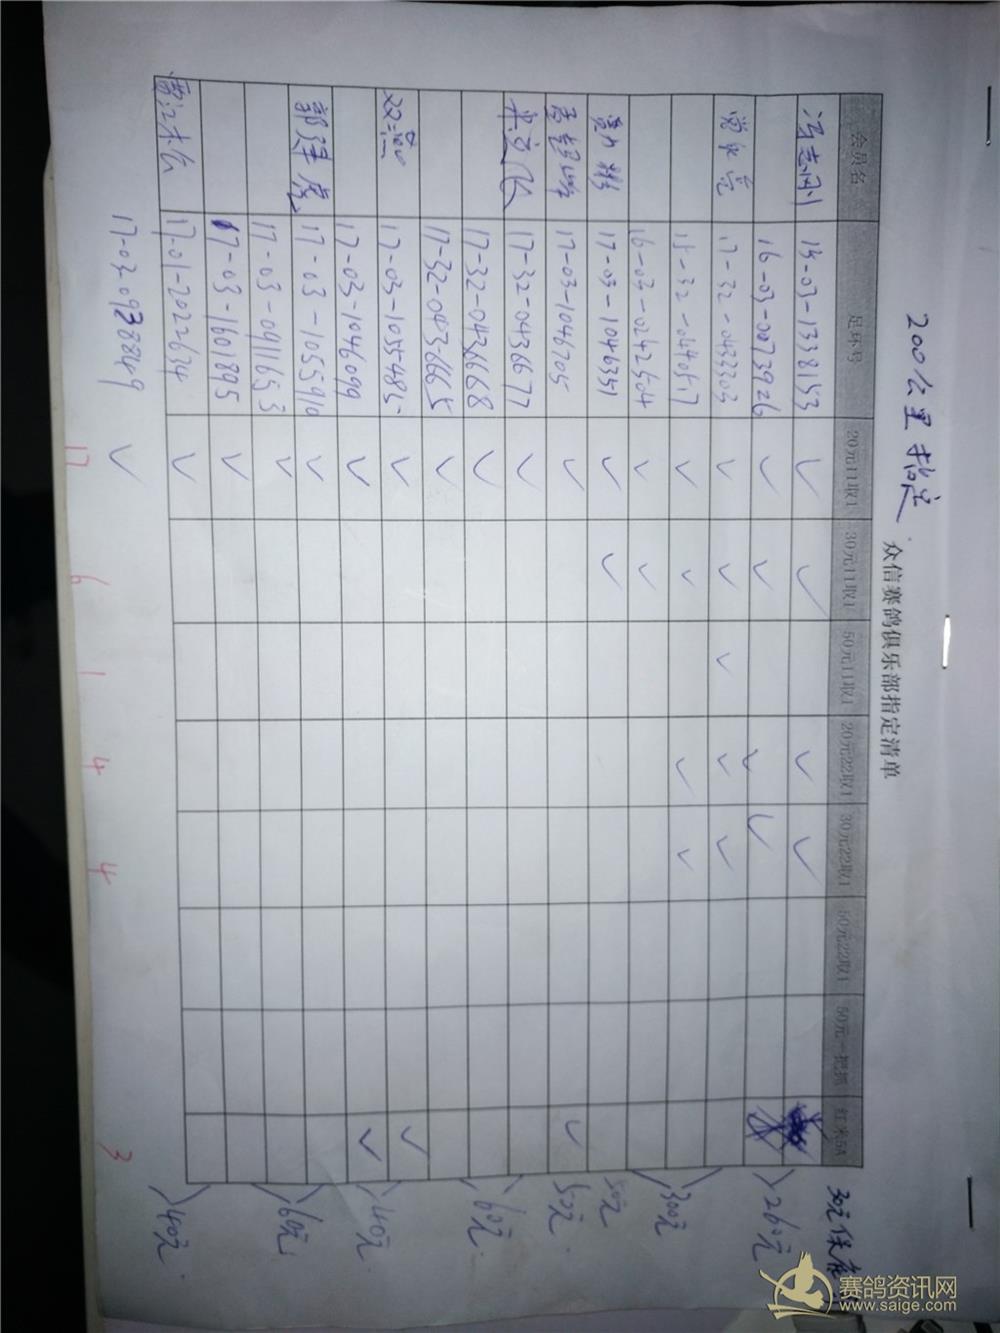 200公里指定
众信赛鸽俱乐部指定清单
会员名 足环号 20元11取1 30元11取1 50元11取1 20元22取1 30元22取1 50元22取1 50元一把抓 红米5A
30元保
冯志刚 14-03-1338153 ✓ ✓ ✓ ✓
16-03-0073926 ✓ ✓ ✓ ✓ 260元
17-32-0433303 ✓ ✓ ✓ ✓ ✓
15-32-0440617 ✓ ✓ ✓ ✓
16-03-0242504 ✓ ✓ 300元
17-03-1046351 ✓ ✓ 50元
17-03-1046705 ✓ ✓ 50元
17-32-0436677 ✓
17-32-0436668 ✓ 60元
17-32-0436665 ✓
17-03-1055485 ✓ ✓
17-03-1046099 ✓ ✓ 140元
17-03-1055910 ✓
17-03-0911653 ✓ 60元
17-03-1601895 ✓
17-01-2022634 ✓ 40元
17-03-0938849 ✓
17 6 1 4 4 3
赛鸽资讯网
www.saige.com